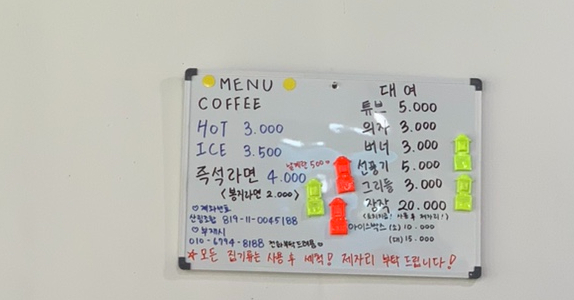 MENU
COFFEE
HOT 3.000
ICE 3.500
날계란 500
즉석라면 4.000
<봉지라면 2.000>
♡계좌번호
산림조합 819-11-0045188
♡부재시
010-6794-8188 전화부탁드려용♡
대여
튜브 5.000
의자 3.000
버너 3.000
선풍기 5.000
그리들 3.000
장작 20.000
사용후 제자리!)
아이스박스 (소) 10.000
(대) 15.000
☆모든 집기류는 사용 후 세척! 제자리 부탁드립니다!